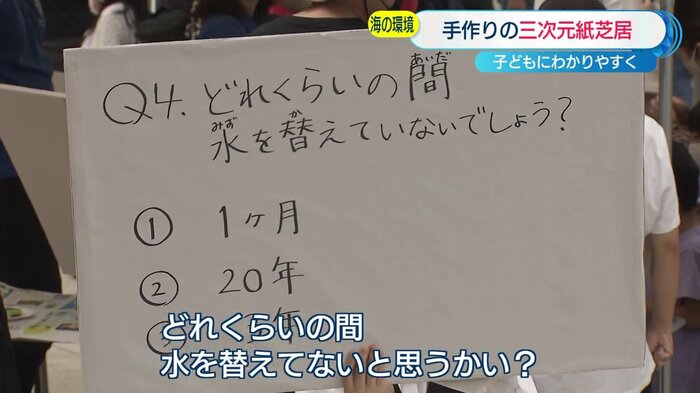 海の環境
手作りの三次元紙芝居
子どもにわかりやすく
Q4. どれくらいの間
あいだ
水を替えていないでしょう?
みず か
① 1ヶ月
② 20年
年
どれくらいの間
水を替えてないと思うかい?